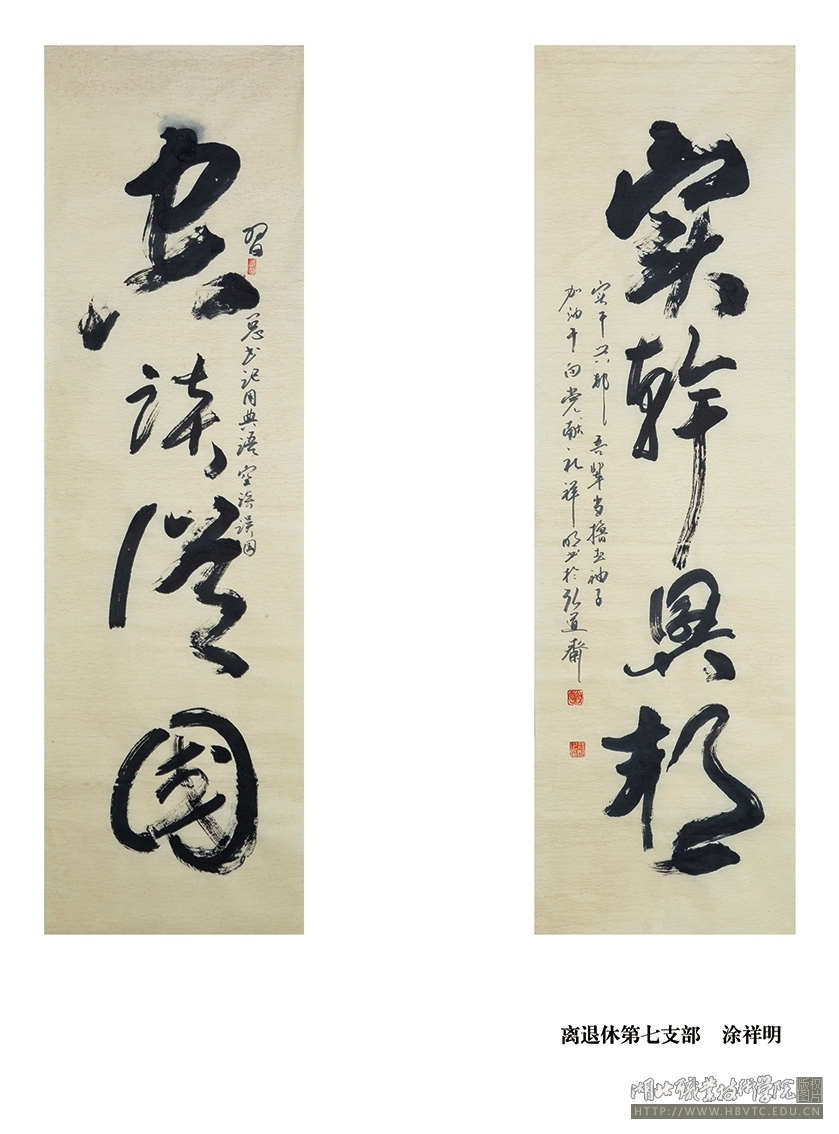 空談誤國
習总书记用典语 空谈误国
实幹興邦
实干兴邦 吾辈当撸起袖子
加油干向党献礼 祥明书於弘道斋
离退休第七支部 涂祥明
湖北职业技术学院
版权图片
HTTP://WWW.HBVTC.EDU.CN